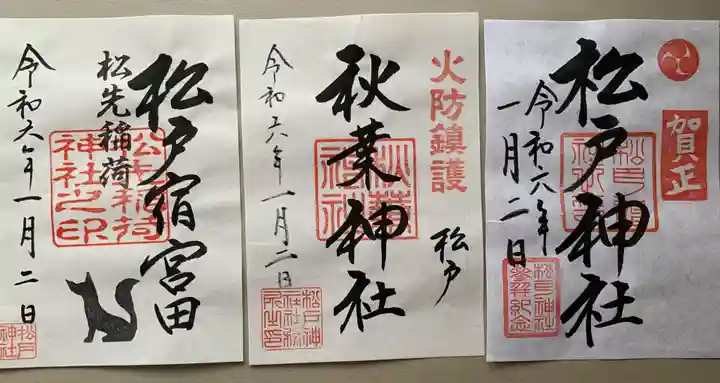 賀正
松戸神社
令和六年
一月二日
松戸神社
火防鎮護
松戸
秋葉神社
秋葉
神社
令和六年一月二日
松戸神
社社務
所之印
松戸宿宮田
松先稲荷
松先稲荷
神社之印
令和六年一月二日
松戸
神社